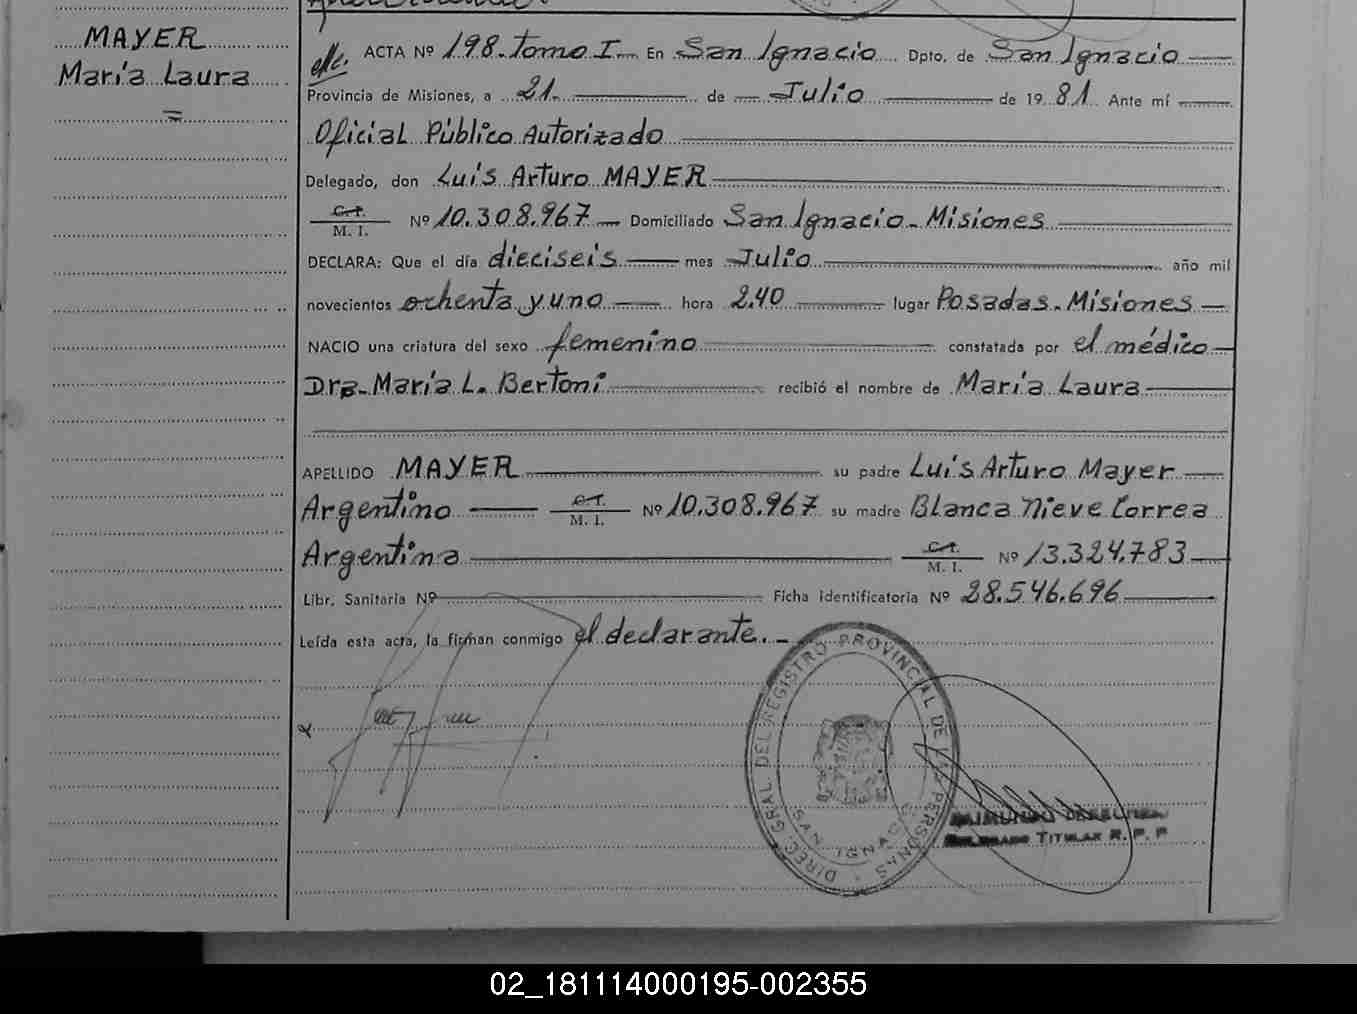 MAYER
María Laura
ACTA Nº 198. Tomo I. En San Ignacio Dpto. de San Ignacio
Provincia de Misiones, a 21. de Julio de 1981 Ante mí
Oficial Público Autorizado
Delegado, don Luis Arturo MAYER
C.I.
M. I. Nº 10.308.967 Domiciliado San Ignacio - Misiones
DECLARA: Que el día dieciseis mes Julio año mil
novecientos ochenta y uno hora 2.40 lugar Posadas - Misiones
NACIO una criatura del sexo femenino constatada por el médico
Dra. María L. Bertoni recibió el nombre de María Laura
APELLIDO MAYER su padre Luis Arturo Mayer
Argentino C.I. M. I. Nº 10.308.967 su madre Blanca Nieve Correa
Argentina C.I. M. I. Nº 13.324.783
Libr. Sanitaria Nº Ficha identificatoria Nº 28.546.696
Leída esta acta, la firman conmigo el declarante. -
DIREC. GRAL. DEL REGISTRO PROVINCIAL DE LAS PERSONAS
SAN IGNACIO
TITULAR R. P. P.
02_181114000195-002355